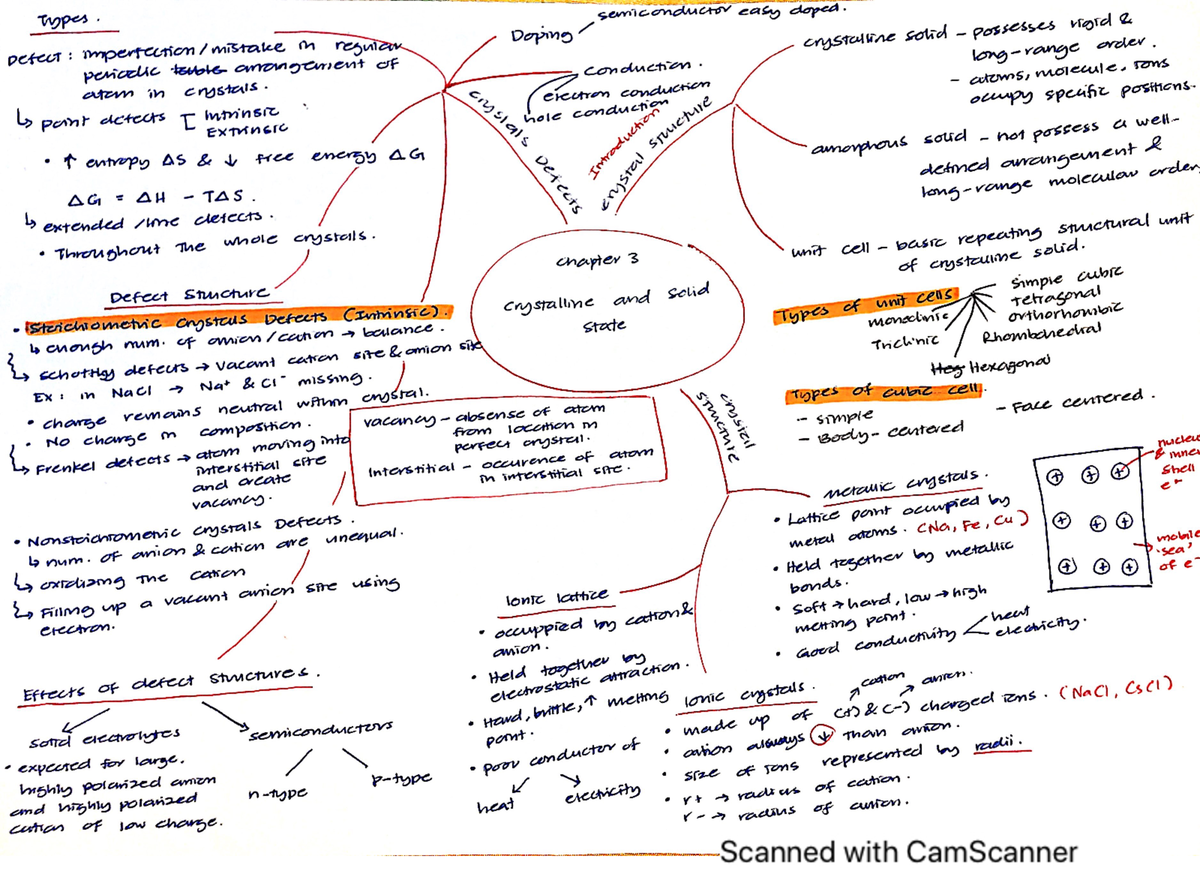 Types.
Defect: imperfection/mistake in regular
periodic arrangement of
atom in crystals.
↳ point defects [ Intrinsic
Extrinsic
• ↑ entropy ΔS & ↓ free energy ΔG
ΔG = ΔH - TΔS.
↳ extended/line defects.
• Throughout the whole crystals.
Doping
semiconductor easy doped.
conduction.
electron conduction
hole conduction
crystals Defects
Introduction
crystal structure
crystalline solid - possesses rigid &
long-range order.
- atoms, molecule, ions
occupy specific positions.
amorphous solid - not possess a well-
defined arrangement &
long-range molecular order.
unit cell - basic repeating structural unit
of crystalline solid.
chapter 3
crystalline and solid
state
Types of unit cells
simple cubic
tetragonal
orthorhombic
Rhombohedral
Hexagonal
monoclinic
Triclinic
Types of cubic cell.
- simple
- Body-centered
- Face centered.
Defect structure
• Stoichiometric crystals Defects (Intrinsic).
↳ enough num. of anion/cation → balance.
↳ schottky defects → vacant cation site & anion site
Ex: in NaCl → Na⁺ & Cl⁻ missing.
• charge remains neutral within crystal.
• No charge in composition.
↳ Frenkel defects → atom moving into
interstitial site
and create
vacancy.
• Nonstoichiometric crystals Defects.
↳ num. of anion & cation are unequal.
↳ oxidizing the cation
↳ Filling up a vacant anion site using
electron.
vacancy - absence of atom
from location in
perfect crystal.
Interstitial - occurence of atom
in interstitial site.
crystal
structure
metallic crystals.
• Lattice point occupied by
metal atoms. (Na, Fe, Cu)
• Held together by metallic
bonds.
• Soft → hard, low → high
melting point.
• Good conductivity < heat
electricity.
nucleus
& inner
shell
e⁻
mobile
'sea'
of e⁻
Ionic lattice
• occuppied by cation &
anion.
• Held together by
electrostatic attraction.
• Hard, brittle, ↑ melting
point.
• poor conductor of
heat
electricity
Ionic crystals.
cation
anion.
• made up of (+) & (-) charged ions. (NaCl, CsCl)
• cation always ↓ than anion.
• size of ions represented by radii.
• r+ → radius of cation.
r- → radius of anion.
Effects of defect structures.
solid electrolytes
• expected for large.
highly polarized anion
and highly polarized
cation of low charge.
semiconductors
n-type
p-type
Scanned with CamScanner